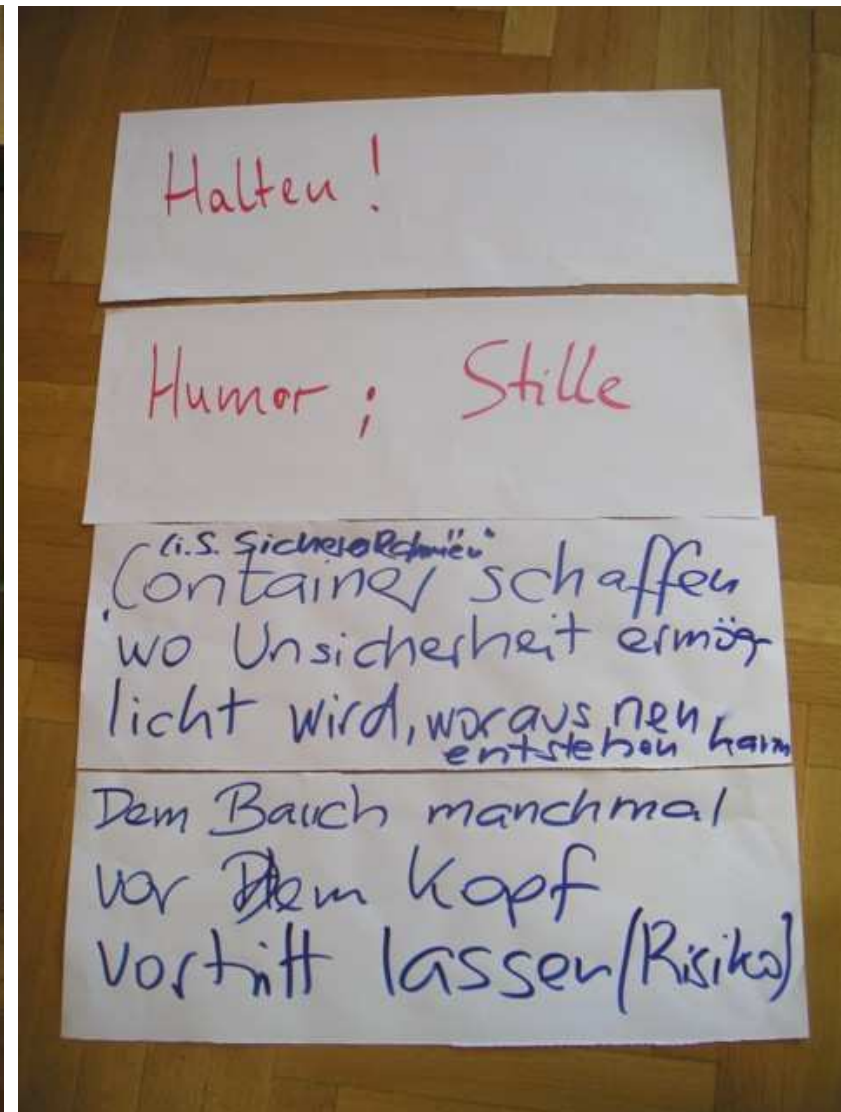 Halten !
Humor ; Stille
(i.S. Sichere Rahmen"
Container schaffen
wo Unsicherheit ermög
licht wird, woraus neu
entstehen kann
Dem Bauch manchmal
vor Dem Kopf
vortritt lassen (Risiko)